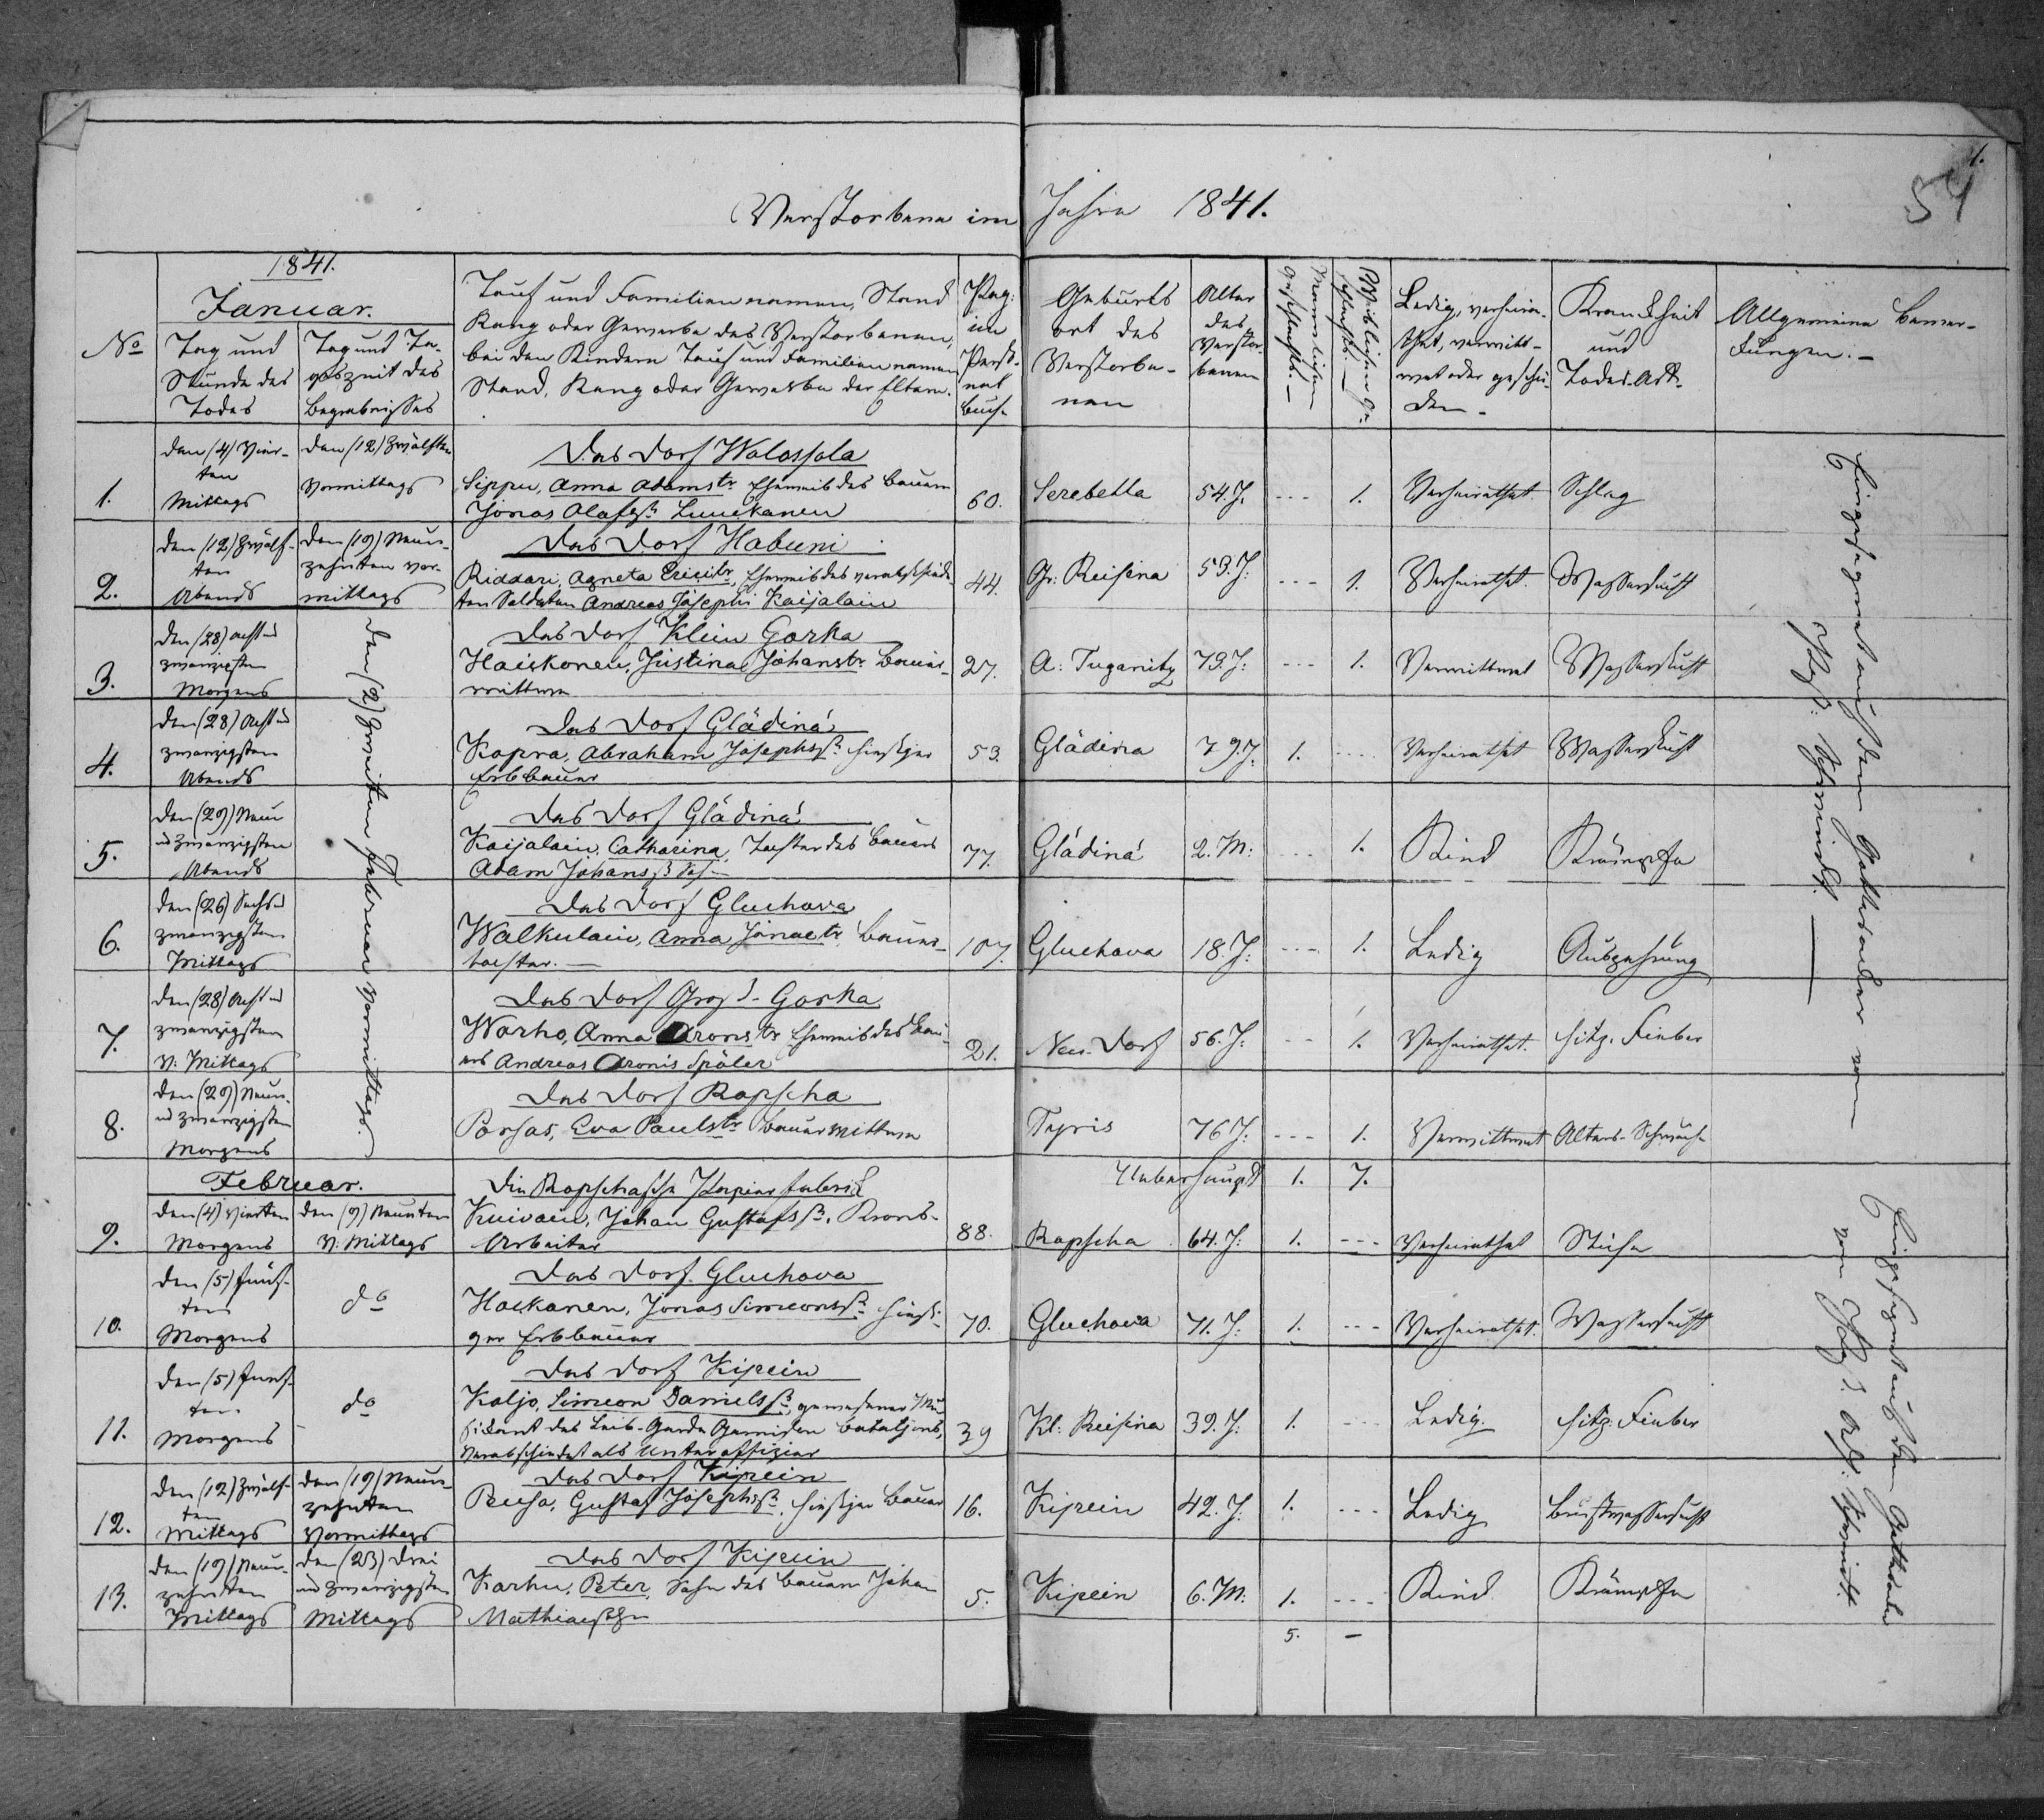 1.
54
Verstorbene im Jahre 1841.
1841.
Januar.
No
Tag und
Stunde des
Todes
Tag und Ta-
geszeit des
Begräbnisses
Tauf und Familiennamen, Stand
Rang oder Gewerbe des Verstorbenen,
bei den Kindern Tauf und Familiennamen
Stand, Rang oder Gewerbe der Eltern.
Pag:
im
Perso-
nal
buch
Geburts
ort des
Verstorbe-
nen
Alter
des
Verstor-
benen
Männlichen
Geschlechts.
Weiblichen Ge-
schlechts.
Ledig, verheira-
thet, verwitt-
wet oder geschie-
den.
Krankheit
und
Todes-Art.
Allgemeine Bemer-
kungen.
1.
den (4) Vier-
ten
Mittags
den (12) Zwölften
Vormittags
Das Dorf Wolossola
Sippu, Anna Adamstr. Eheweib des Bauern
Jonas Olofss. Luukanen
60.
Serebetta
54. J.
---
1.
Verheirathet
Schlag
2.
den (12) Zwölf-
ten
Abends
den (19) Neun-
zehnten Vor-
mittags
Das Dorf Habuni
Riddari, Agneta Ericitr, Eheweib des verabschiede-
ten Soldaten Andreas Josephi Kaijalain
44.
Gr: Ruisina
59. J.
---
1.
Verheirathet
Wassersucht
3.
den (28) acht u
zwanzigsten
Morgens
den (2) Zweiten Februar Vormittags.
Das Dorf Klein Gorka
Haikonen, Justina Johanstr. Bauer-
wittwe
27.
A: Tuganitz
79. J.
---
1.
Verwittwet
Wassersucht
4.
den (28) Acht u
zwanzigsten
Abends
Das Dorf Glädina
Kapra, Abraham Josephss. hiesiger
Erbbauer
53.
Glädina
79. J.
1.
---
Verheirathet
Wassersucht
5.
den (29) Neun
u zwanzigsten
Abends
Das Dorf Glädina
Kaijalain, Catharina, Tochter des Bauers
Adam Johanss.
77.
Glädina
2. M:
---
1.
Kind
Krämpfe
6.
den (26) Sechs u
zwanzigsten
Mittags
Das Dorf Gluchova
Walkulain, Anna Jonaetr Bauer-
tochter.
107.
Gluchova
18. J:
---
1.
Ledig
Auszehrung
7.
den (28) Acht u
zwanzigsten
V: Mittags
Das Dorf Gross-Gorka
Warho, Anna Aronstr Eheweib des Bau-
ers Andreas Aronis Späler
21.
Neu-Dorf
56. J:
--
1.
Verheirathet.
hitz. Fieber
8.
den (29) Neun-
u zwanzigsten
Morgens
Das Dorf Ropscha
Porsas, Eva Paulstr. Bauerwittwe
Typris
76 J:
---
1.
Verwittwet
Alters-Schwäche
Ueberhaupt
1.
7.
Februar.
9.
den (4) Vierten
Morgens
den (9) Neunten
V: Mittags
Die Ropschasche Papierfabrik
Kuivain, Johan Gustafss. Krons-
Arbeiter
88.
Ropscha
64. J:
1.
---
Verheirathet
10.
den (5) Fünf-
ten
Morgens
do
Das Dorf Gluchova
Hackanen, Jonas Simeonss. hiesi-
ger Erbbauer
70.
Gluchova
71. J:
1.
---
Verheirathet.
Wassersucht
11.
den (5) Fünf-
ten
Morgens
do
Das Dorf Kipein
Koljo, Simeon Danielss. gewesener Mu-
sikant des Leib-Garde Garnison Bataljons,
verabschiedet als Unteroffizier
39
Kl: Ruisina
39. J:
1.
---
Ledig.
hitz: Fieber
12.
den (12) Zwölf-
ten
Mittags
den (19) Neun-
zehnten
Vormittags
Das Dorf Kipein
Reuha, Gustaf Josephss. hiesiger Bauer
16.
Kipein
42. J:
1.
---
Ledig
Brustwassersucht
13.
den (19) Neun-
zehnten
Mittags
den (23) Drei
u zwanzigsten
Mittags
Das Dorf Kipein
Karhu, Peter, Sohn des Bauern Johan
Mathiaesohn
5.
Kipein
6. M:
1.
---
Kind
Krämpfe
5.
-
Eingesegnet auf dem Gottesacker vom
Eingesegnet auf dem Gottesacker